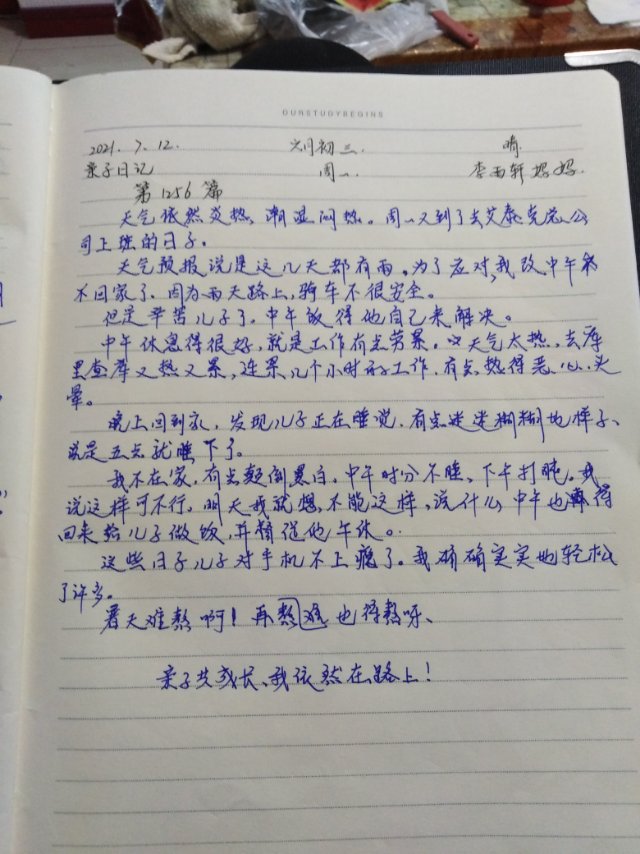 OURSTUDYBEGINS
2021.7.12. 六月初三. 晴.
亲子日记 周一. 李雨轩妈妈.
第1256篇
天气依然炎热,潮湿闷热。周一又到了去艾泰克公
司上班的日子。
天气预报说是这几天都有雨。为了应对,我改中午
不回家了,因为雨天路上,骑车不很安全。
但是辛苦儿子了,中午饭得他自己来解决。
中午休息得很好,就是工作有点劳累。天气太热,去库
里查库又热又累,连累几个小时的工作,有点热得恶心、头
晕。
晚上回到家,发现儿子正在睡觉,有点迷迷糊糊地样子、
说是五点就睡下了。
我不在家,有点颠倒黑白。中午时分不睡,下午打盹。我
说这样可不行,明天我就想,不能这样,说什么中午也得
回来给儿子做饭,并督促他午休。
这些日子儿子对手机不上瘾了。我确确实实地轻松
了许多。
暑天难熬啊!再熬难也得熬呀、
亲子共成长、我依然在路上!